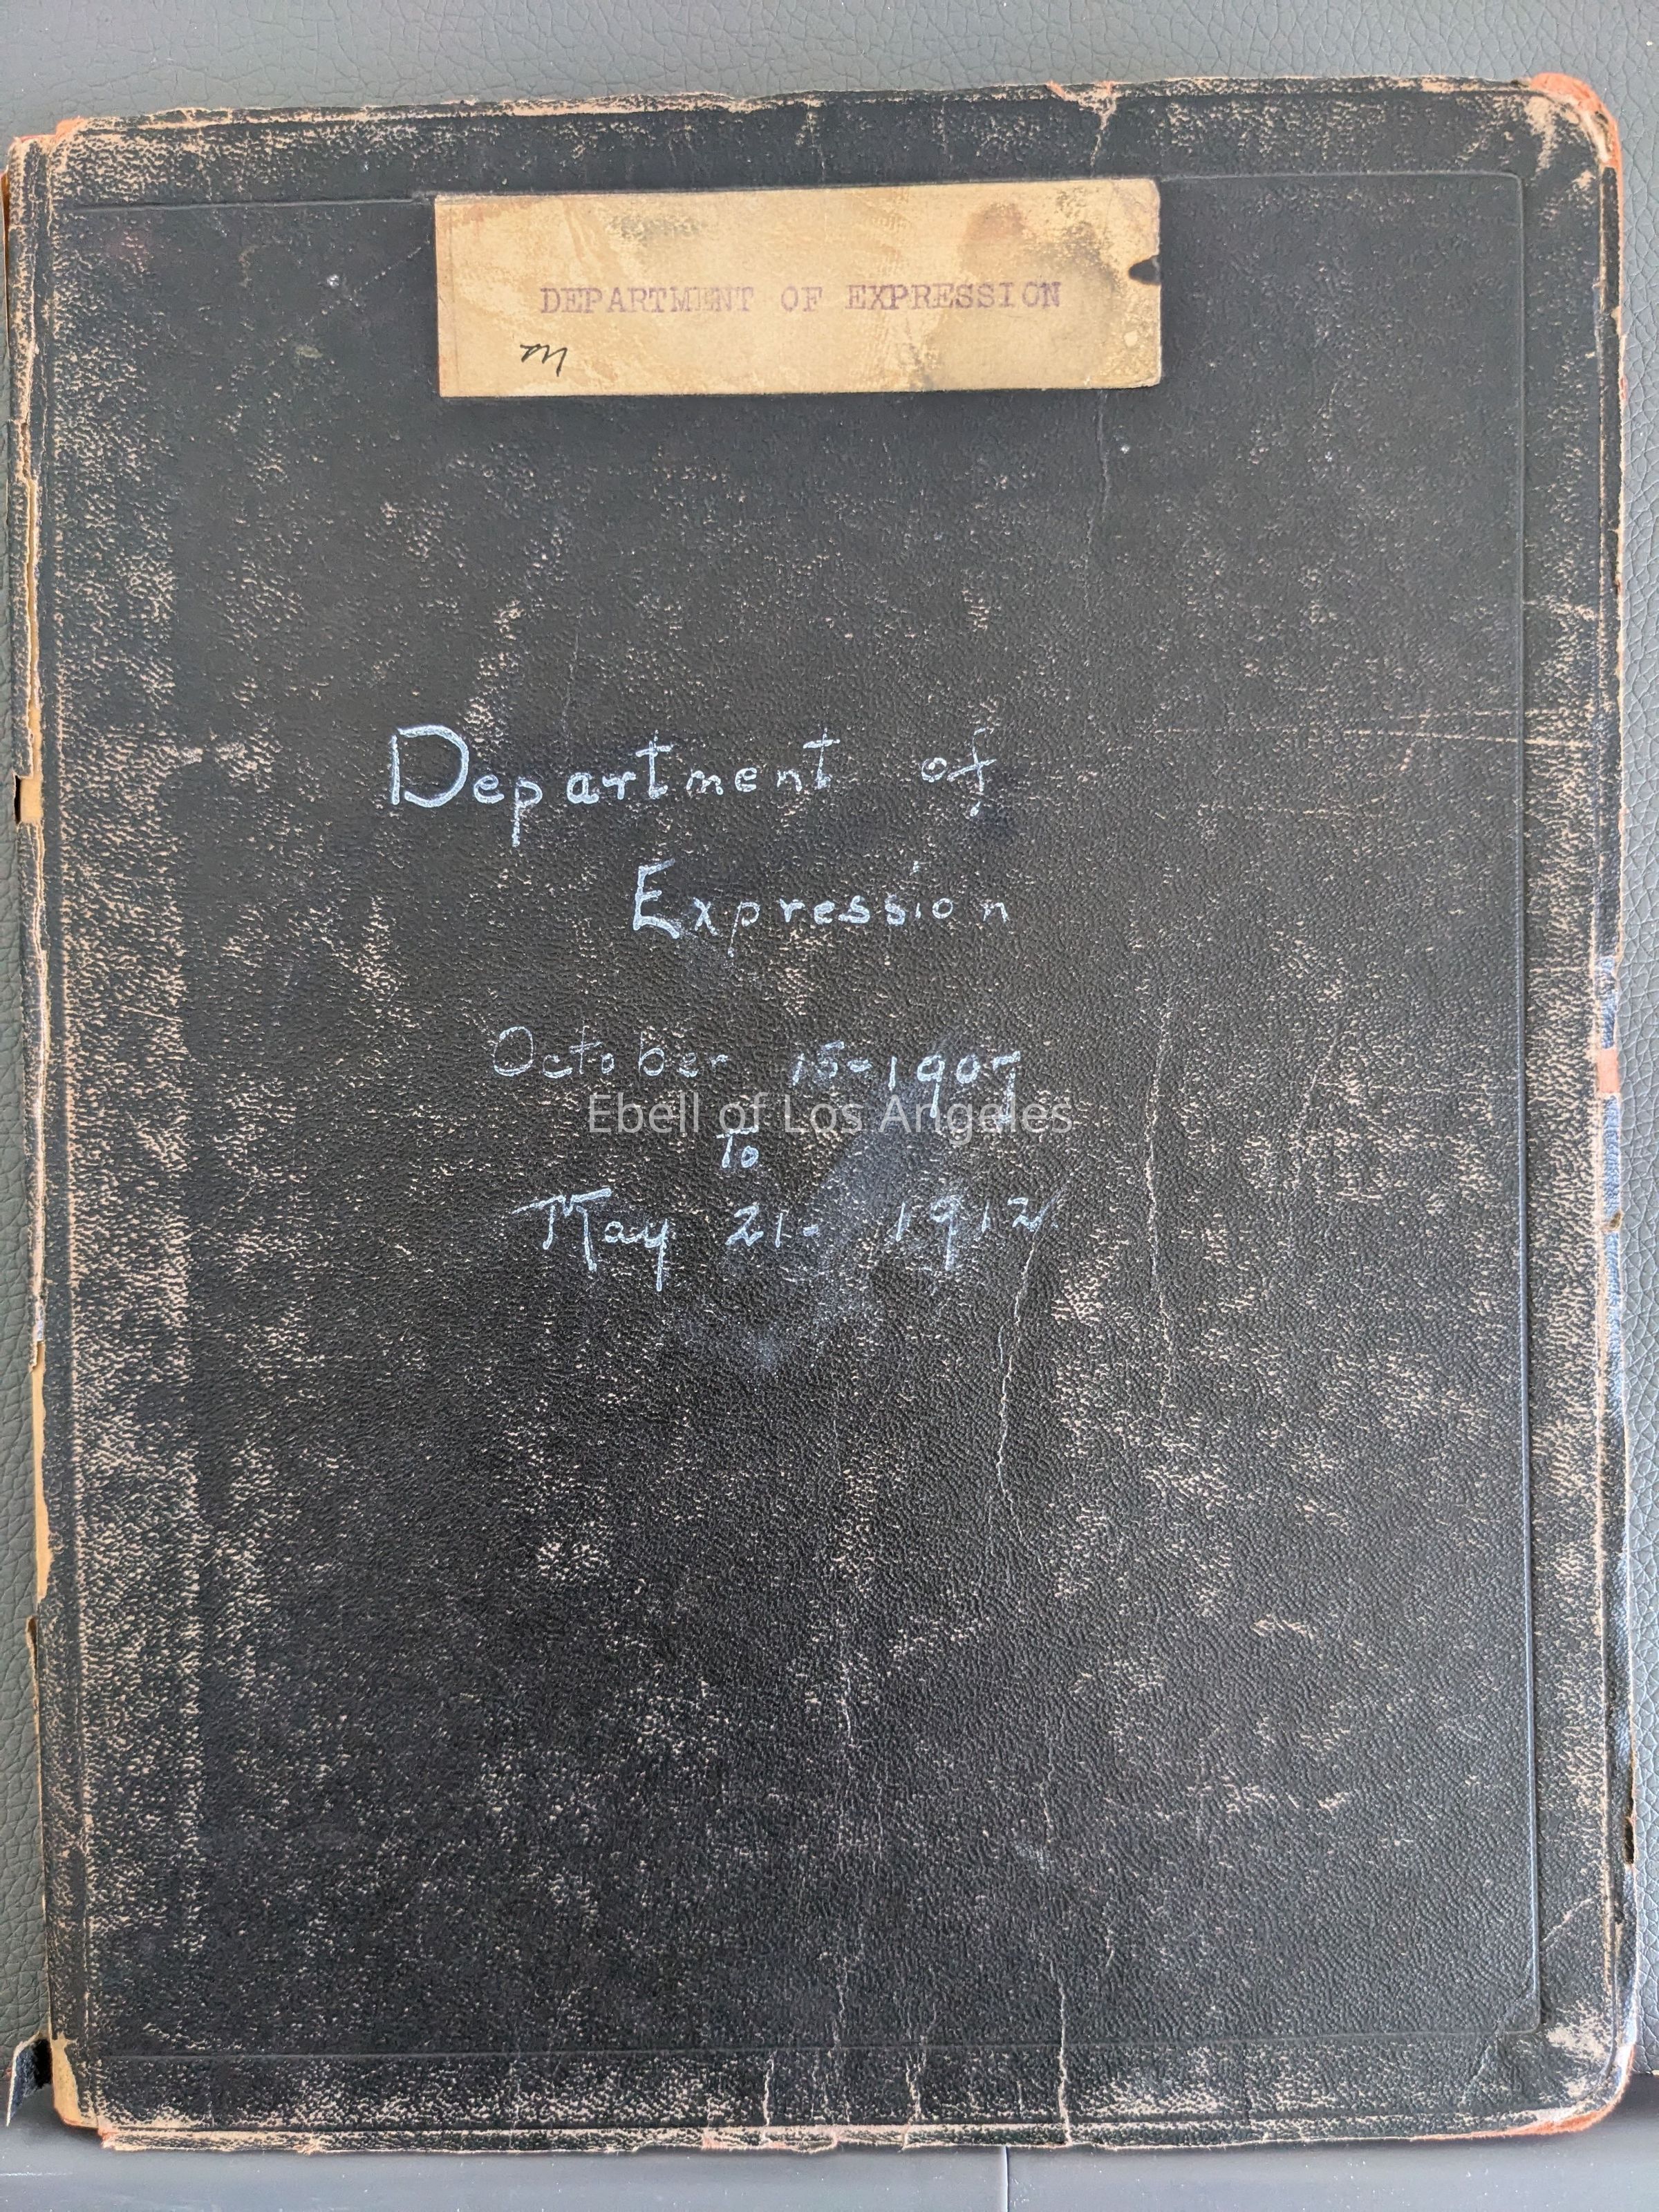 DEPARTMENT OF EXPRESSION
m
Department of
Expression
October 15-1907
Ebell of Los Angeles
To
May 21- 1912